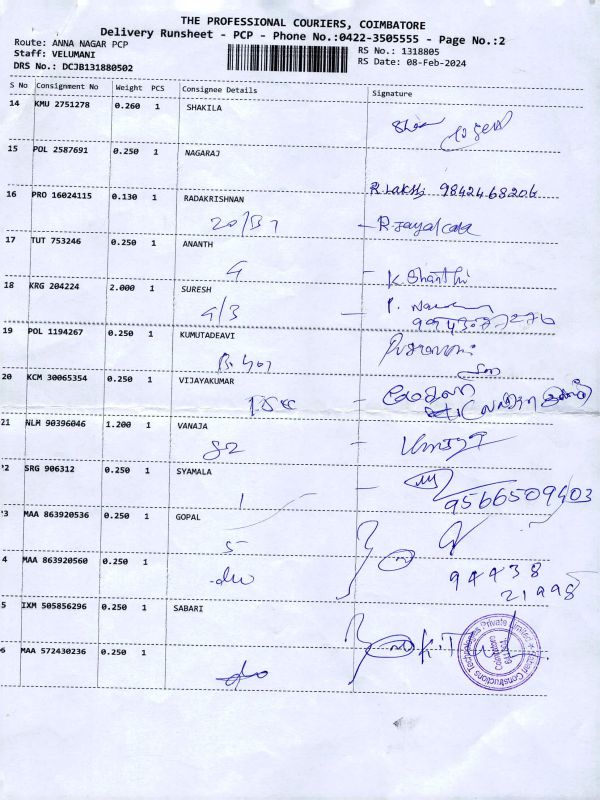 THE PROFESSIONAL COURIERS, COIMBATORE
Delivery Runsheet - PCP - Phone No.:0422-3505555 - Page No.:2
Route: ANNA NAGAR PCP
RS No.: 1318805
Staff: VELUMANI
RS Date: 08-Feb-2024
DRS No.: DCJB131880502
S No Consignment No Weight PCS Consignee Details Signature
14 KMU 2751278 0.260 1 SHAKILA
15 POL 2587691 0.250 1 NAGARAJ
R. Lakshi 9842468206
16 PRO 16024115 0.130 1 RADAKRISHNAN
20/B7 - R. Jayalcada
17 TUT 753246 0.250 1 ANANTH
4 - K Shanthi
18 KRG 204224 2.000 1 SURESH
4/3 - P.
19 POL 1194267 0.250 1 KUMUTADEAVI
20 KCM 30065354 0.250 1 VIJAYAKUMAR
21 NLM 90396046 1.200 1 VANAJA
82 -
22 SRG 906312 0.250 1 SYAMALA
1 - 9566509403
3 MAA 863920536 0.250 1 GOPAL
5
4 MAA 863920560 0.250 1
do 94438
21998
5 IXM 505856296 0.250 1 SABARI
K.T
6 MAA 572430236 0.250 1
do
Constructions Technologies Private Limited
Coimbatore